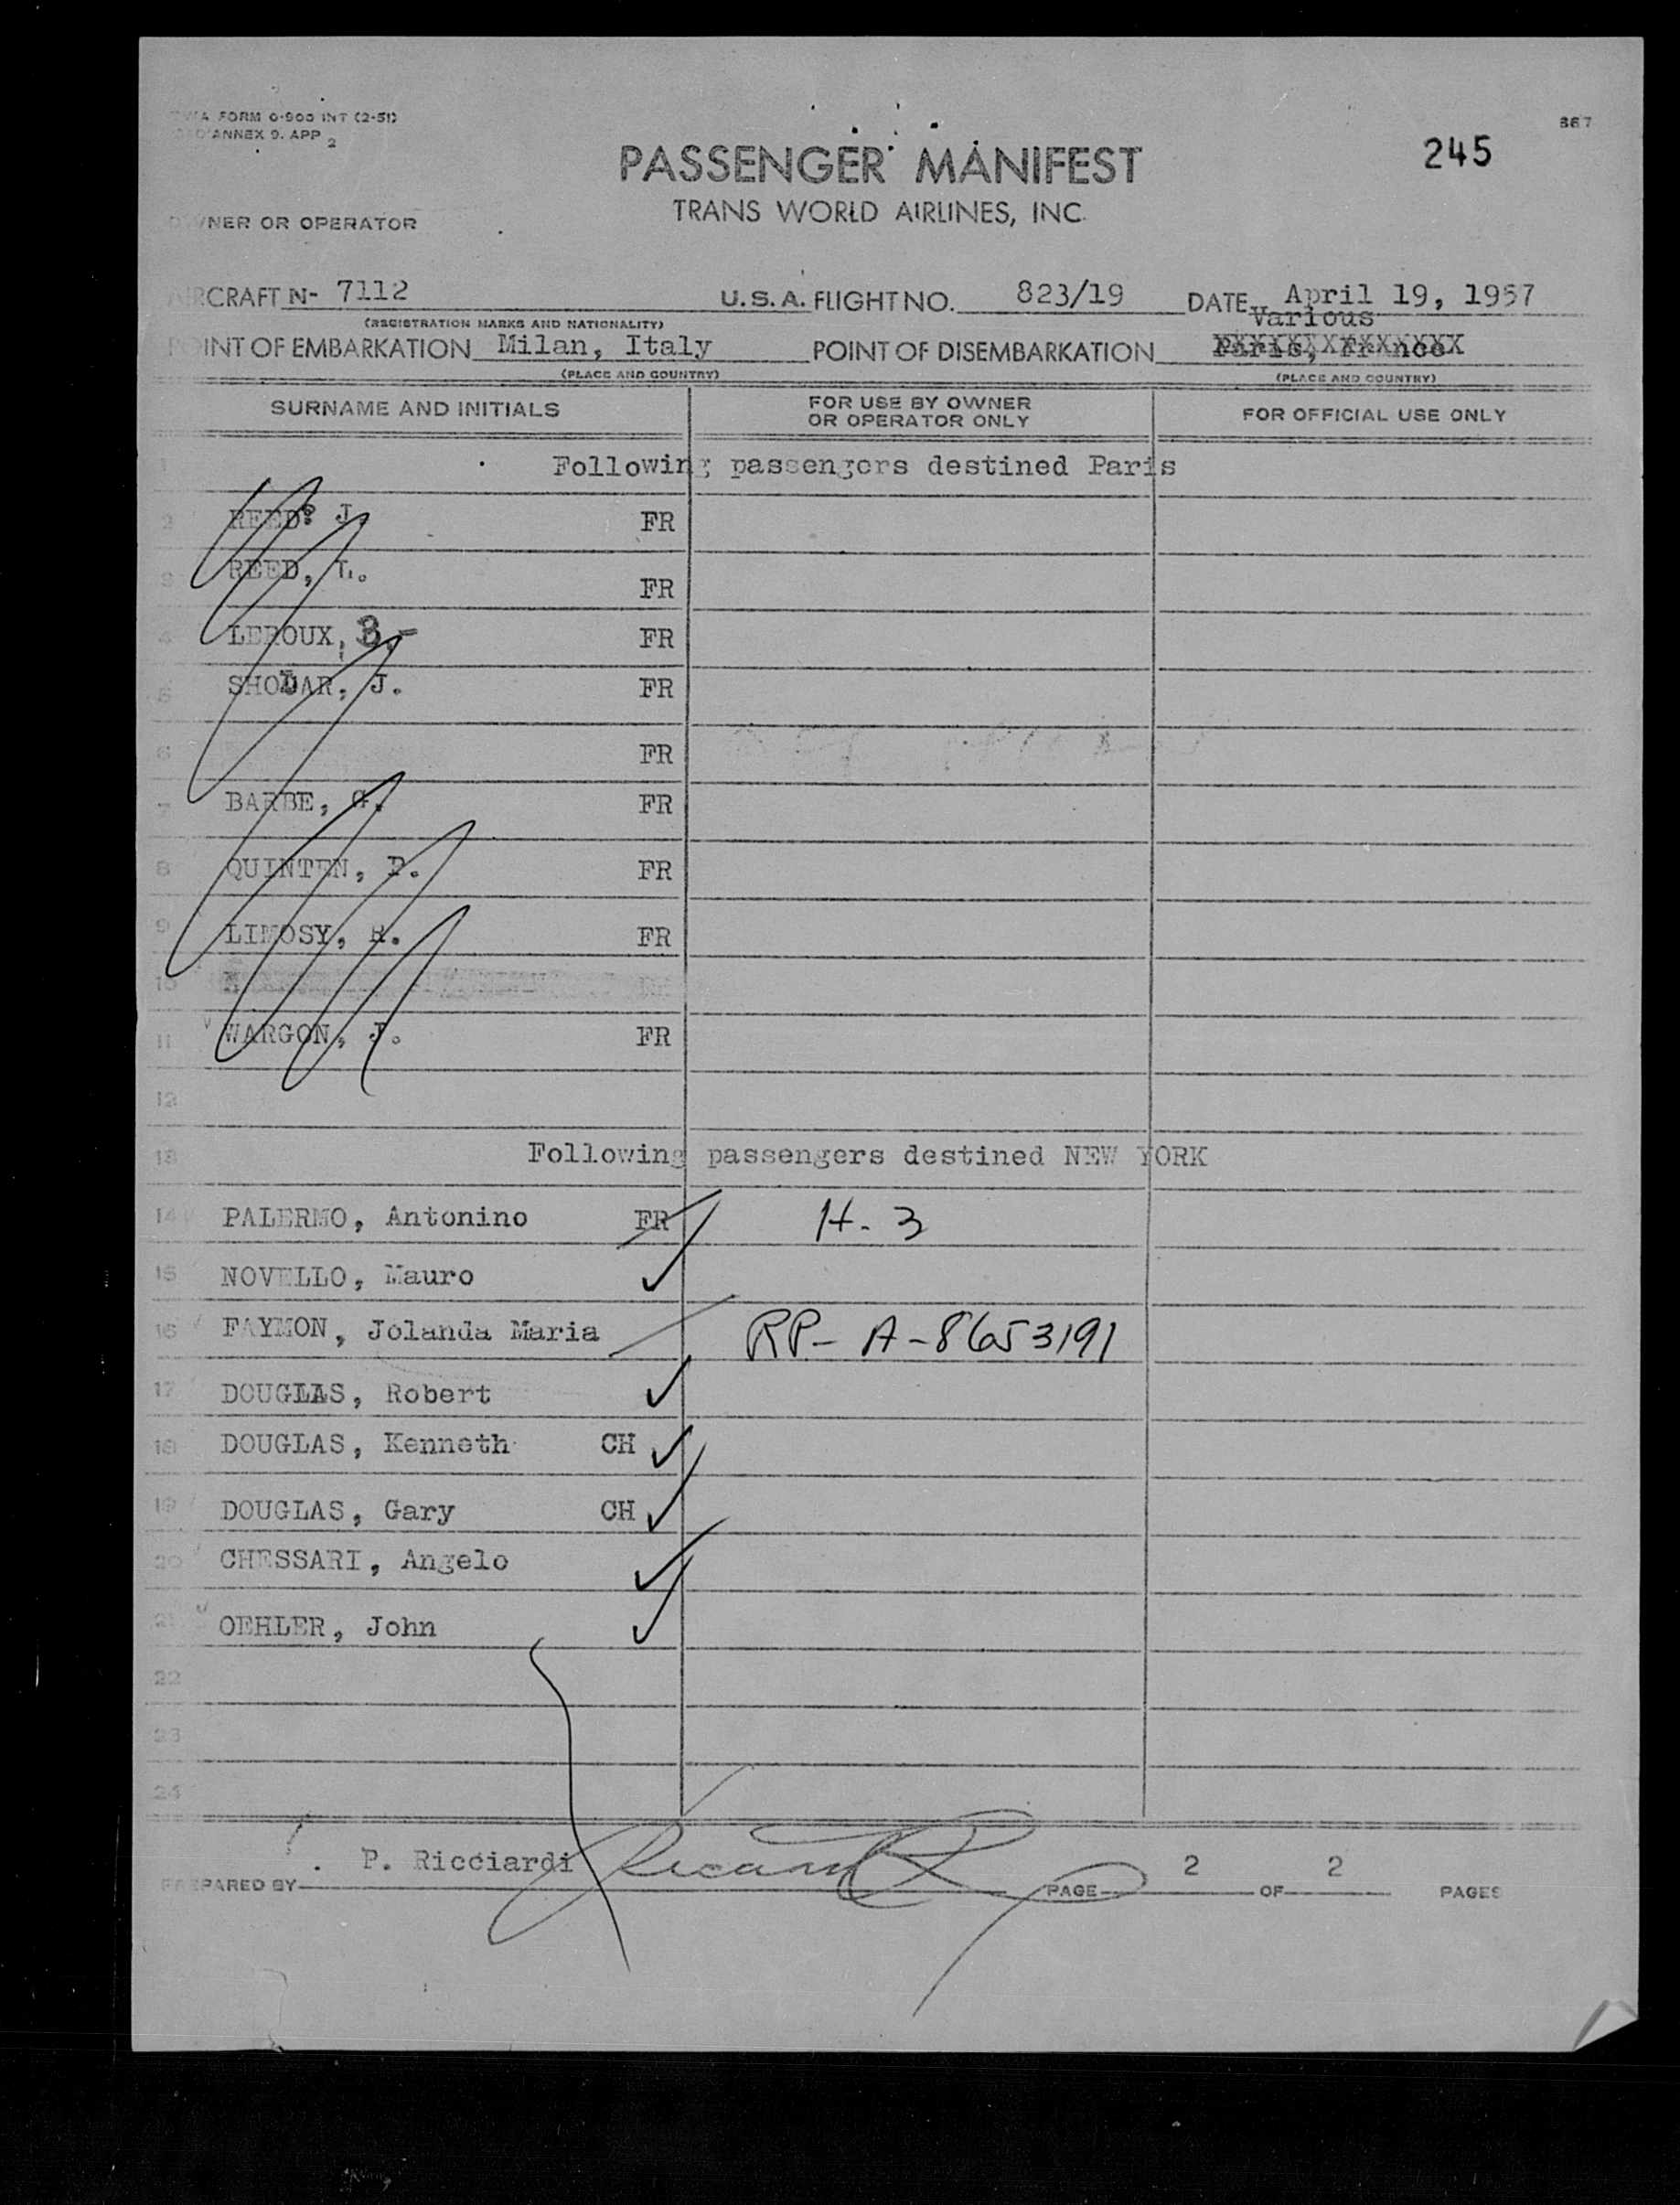 FORM 0-900 INT (2-51)
ANNEX 9. APP 2
867
245
PASSENGER MANIFEST
TRANS WORLD AIRLINES, INC.
OWNER OR OPERATOR
AIRCRAFT N- 7112 U.S.A. FLIGHT NO. 823/19 DATE April 19, 1957
(REGISTRATION MARKS AND NATIONALITY)
Various
POINT OF EMBARKATION Milan, Italy POINT OF DISEMBARKATION Paris, France
(PLACE AND COUNTRY) (PLACE AND COUNTRY)
SURNAME AND INITIALS FOR USE BY OWNER OR OPERATOR ONLY FOR OFFICIAL USE ONLY
1 Following passengers destined Paris
2 REED, J. FR
3 REED, L. FR
4 LEROUX, B.- FR
5 SHODAR, J. FR
6 FR
7 BARBE, G. FR
8 QUINTEN, P. FR
9 LIMOSY, R. FR
10
11 WARGON, J. FR
12
13 Following passengers destined NEW YORK
14 PALERMO, Antonino FR H-3
15 NOVELLO, Mauro ✓
16 FAYMON, Jolanda Maria RP- A-8653191
17 DOUGLAS, Robert ✓
18 DOUGLAS, Kenneth CH ✓
19 DOUGLAS, Gary CH ✓
20 CHESSARI, Angelo ✓
21 OEHLER, John ✓
22
23
24
PREPARED BY P. Ricciardi PAGE 2 OF 2 PAGES